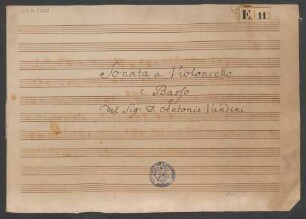 E. 11.
Sonata a Violoncello
e Basso
del Sig: D. Antonio Vandini